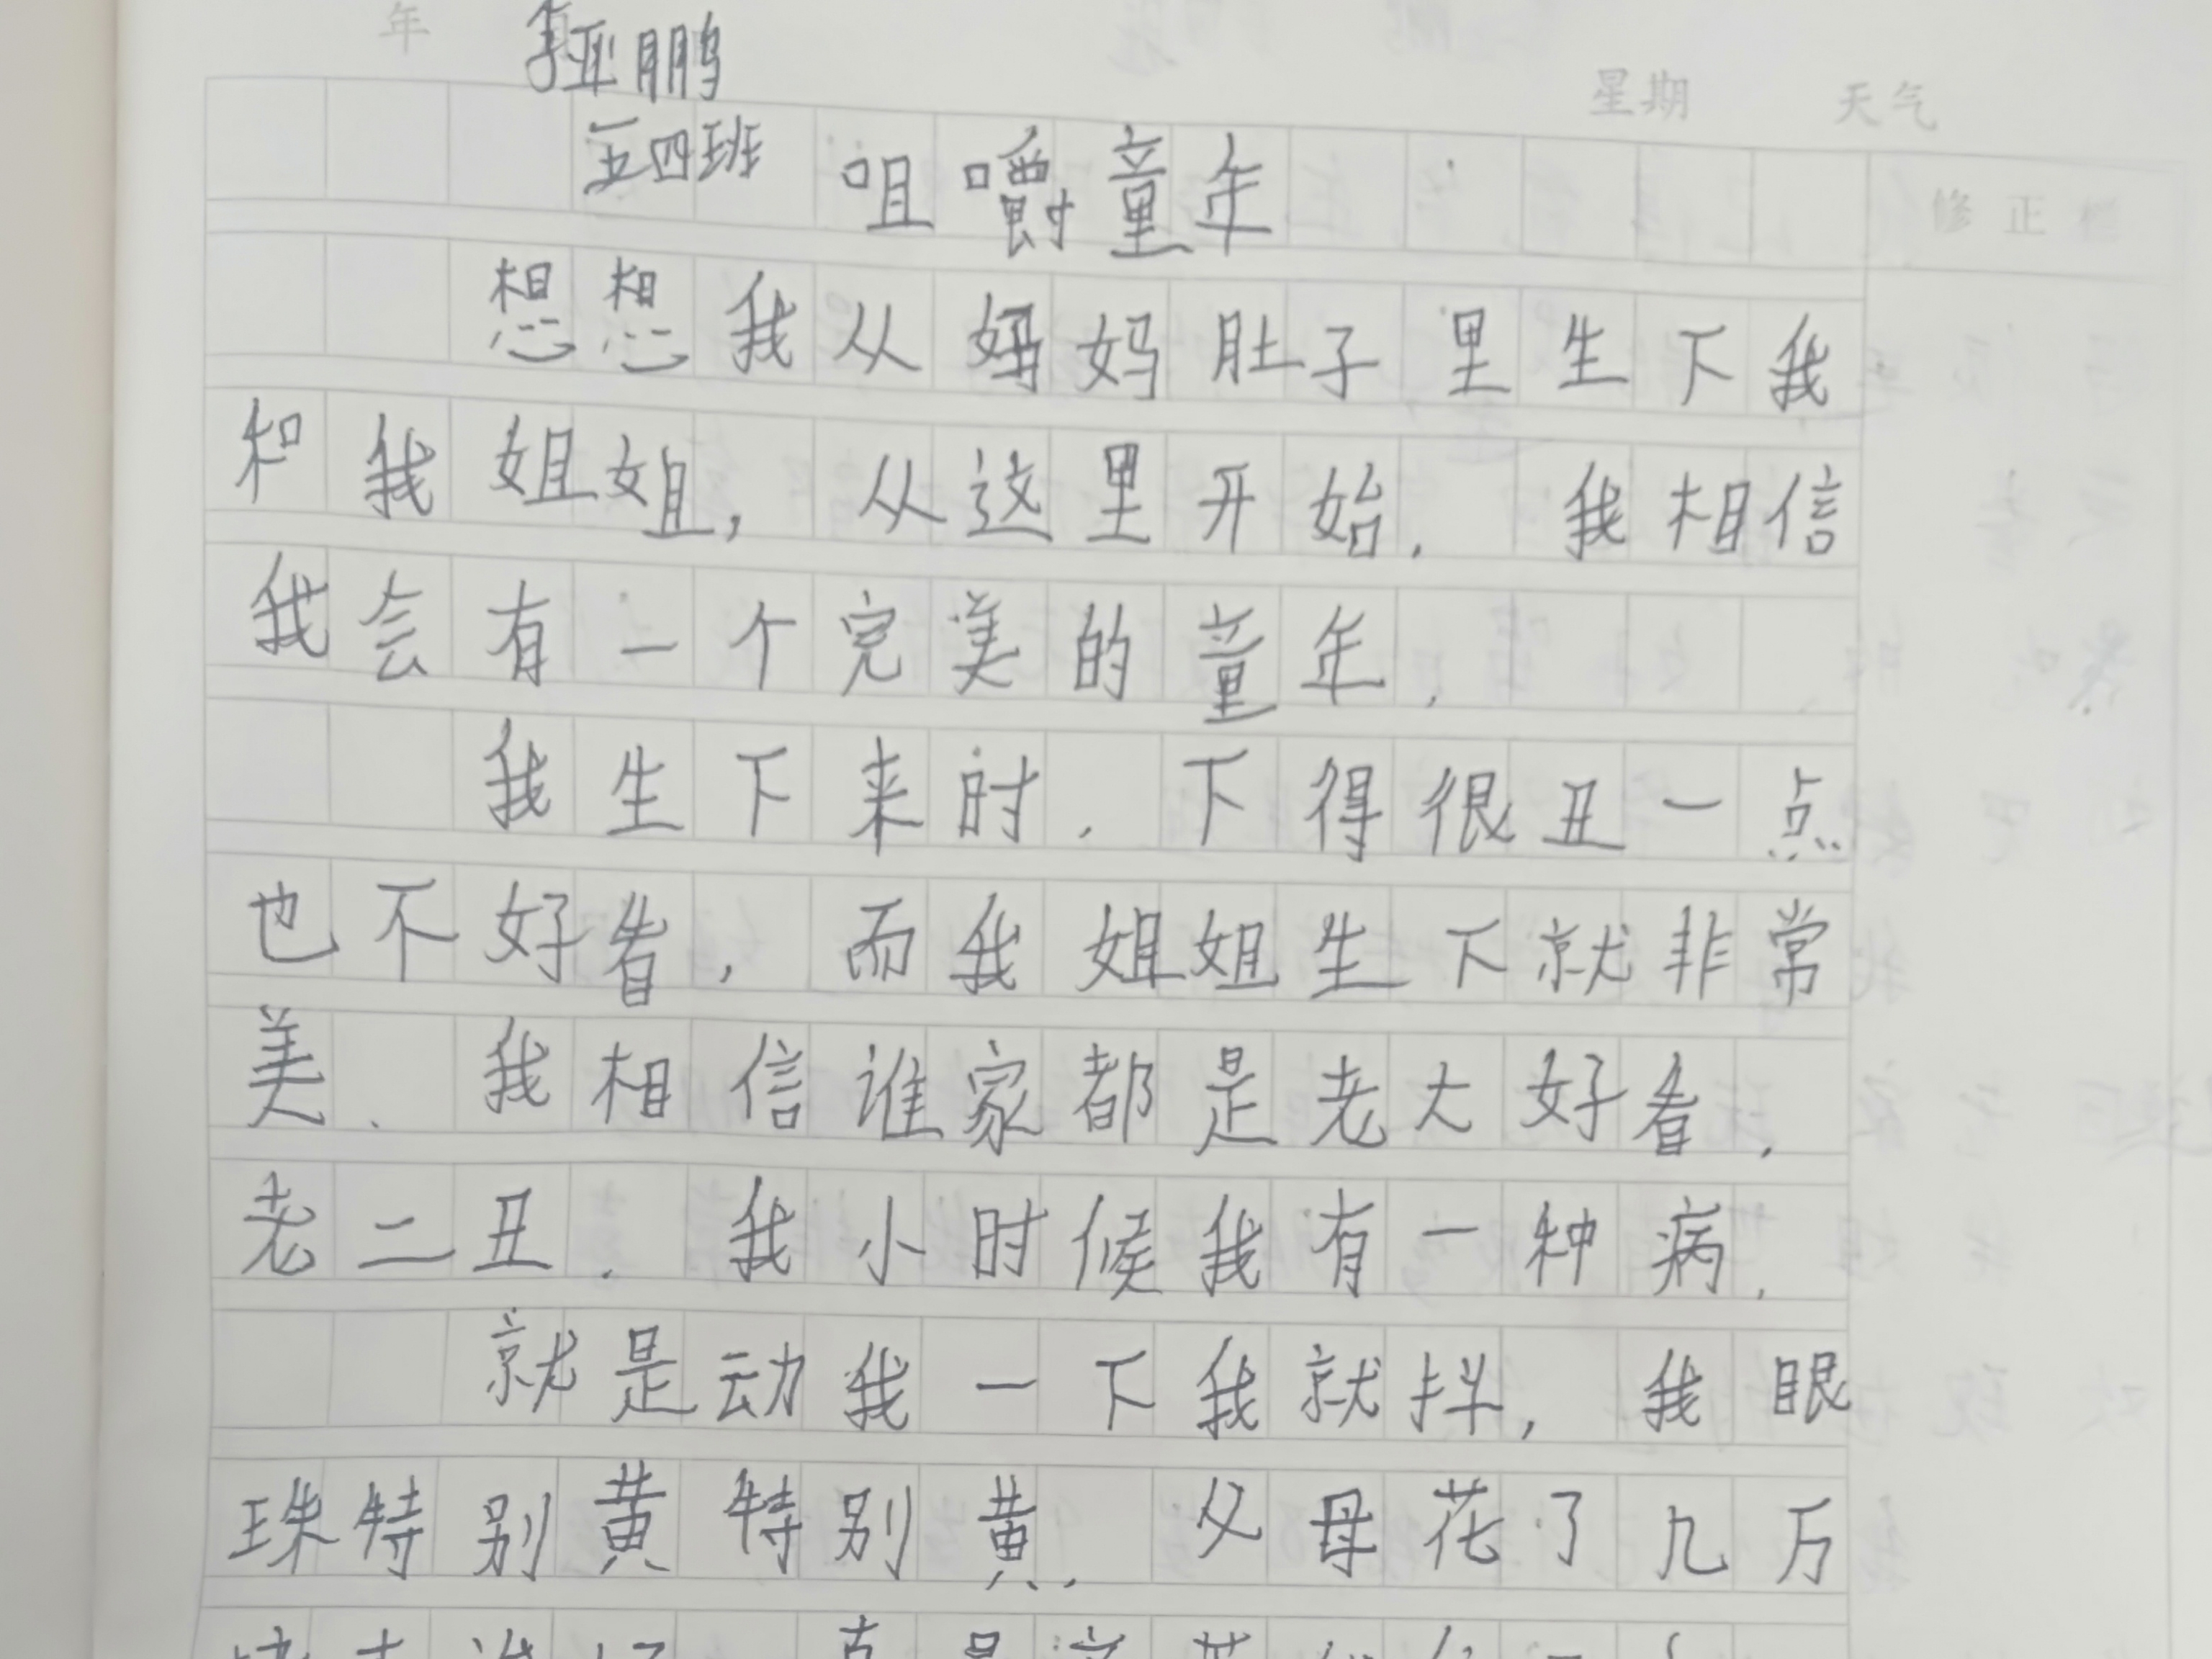 年
亚鹏
星期 天气
五四班
咀嚼童年
修正栏
想想我从妈妈肚子里生下我
和我姐姐，从这里开始．我相信
我会有一个完美的童年．
我生下来时．下得很丑一点
也不好看，而我姐姐生下就非常
美．我相信谁家都是老大好看．
老二丑．我小时候我有一种病．
就是动我一下我就抖，我眼
珠特别黄特别黄．父母花了几万